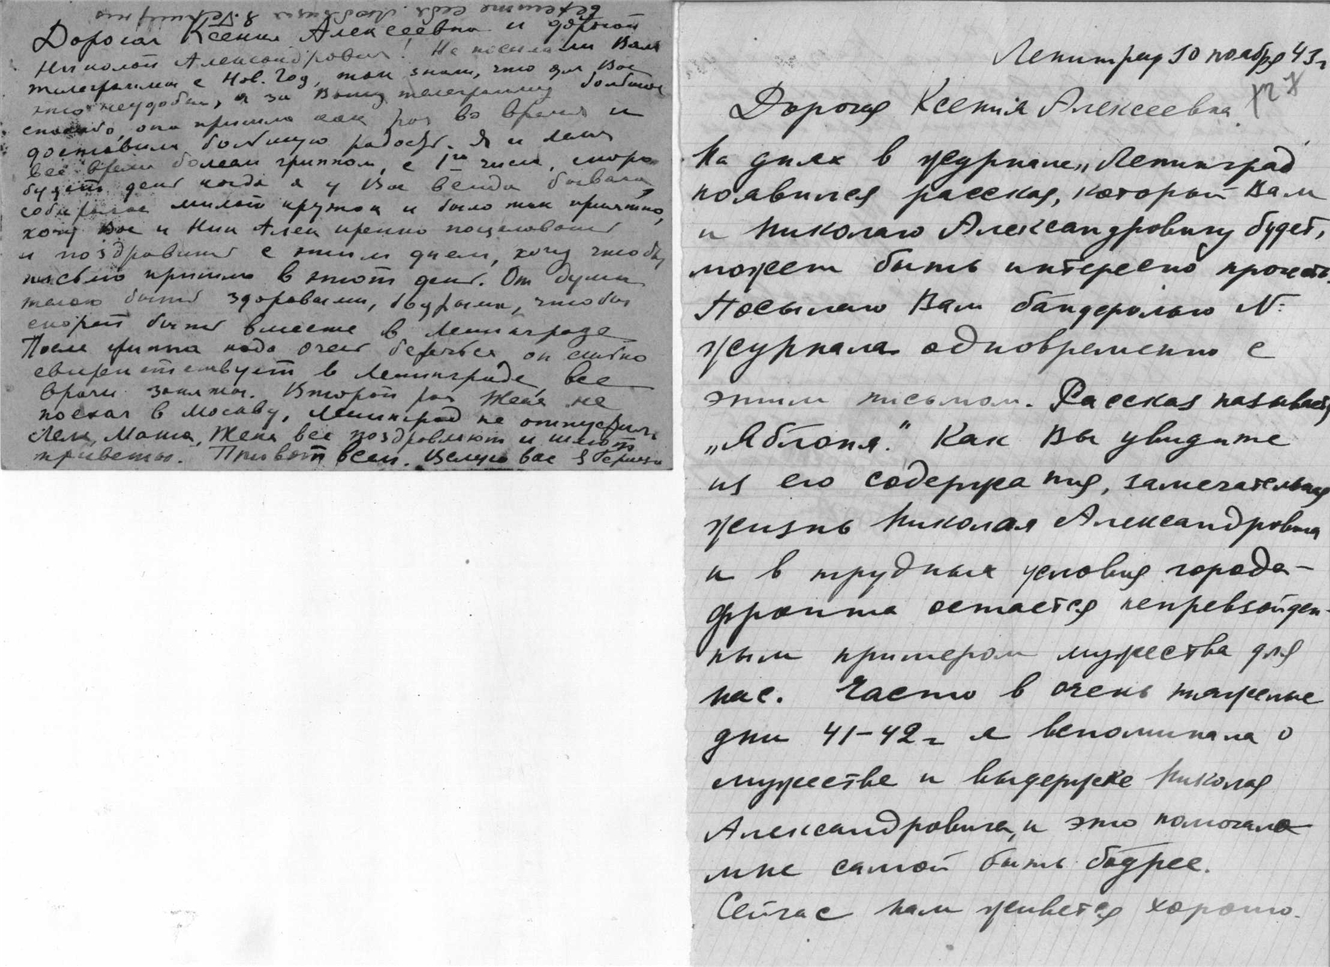 Дорогая Ксения Алексеевна и дорогой
Николай Александрович! Не послали Вам
телеграммы с Нов. Год, так знали, что для Вас
это неудобно, а за Вашу телеграмму большое
спасибо, она пришла как раз во время и
доставила большую радость. Я и Леля
все время болеем гриппом, с 1го числа, скоро
будет день когда я у Вас всегда бывала,
собирался милый кружок и было так приятно,
хочу Вас и Ник Алек крепко поцеловать
и поздравить с этим днем, хочу чтобы
письмо пришло в этот день. От души
желаю быть здоровыми, бодрыми, чтобы
скорей быть вместе в Ленинграде
После гриппа надо очень беречься он сильно
свирепствует в Ленинграде, все
врачи заняты. Второй раз Женя не
поехал в Москву, Ленинград не отпустил
Леля, Маша, Женя все поздравляют и шлют
приветы. Привет всем. Целую вас
Ленинград 10 ноября 43 г
Дорогая Ксения Алексеевна
На днях в журнале „Ленинград
появился рассказ, который Вам
и Николаю Александровичу будет,
может быть интересно прочесть.
Посылаю Вам бандеролью №
журнала одновременно с
этим письмом. Рассказ называется
„Яблоня." Как Вы увидите
из его содержания, замечательная
жизнь Николая Александровича
и в трудных условия города-
фронта остается непревзойден-
ным примером мужества для
нас. Часто в очень тяжелые
дни 41-42 г я вспоминала о
мужестве и выдержке Николая
Александровича, и это помогало
мне самой быть бодрее.
Сейчас нам живется хорошо.